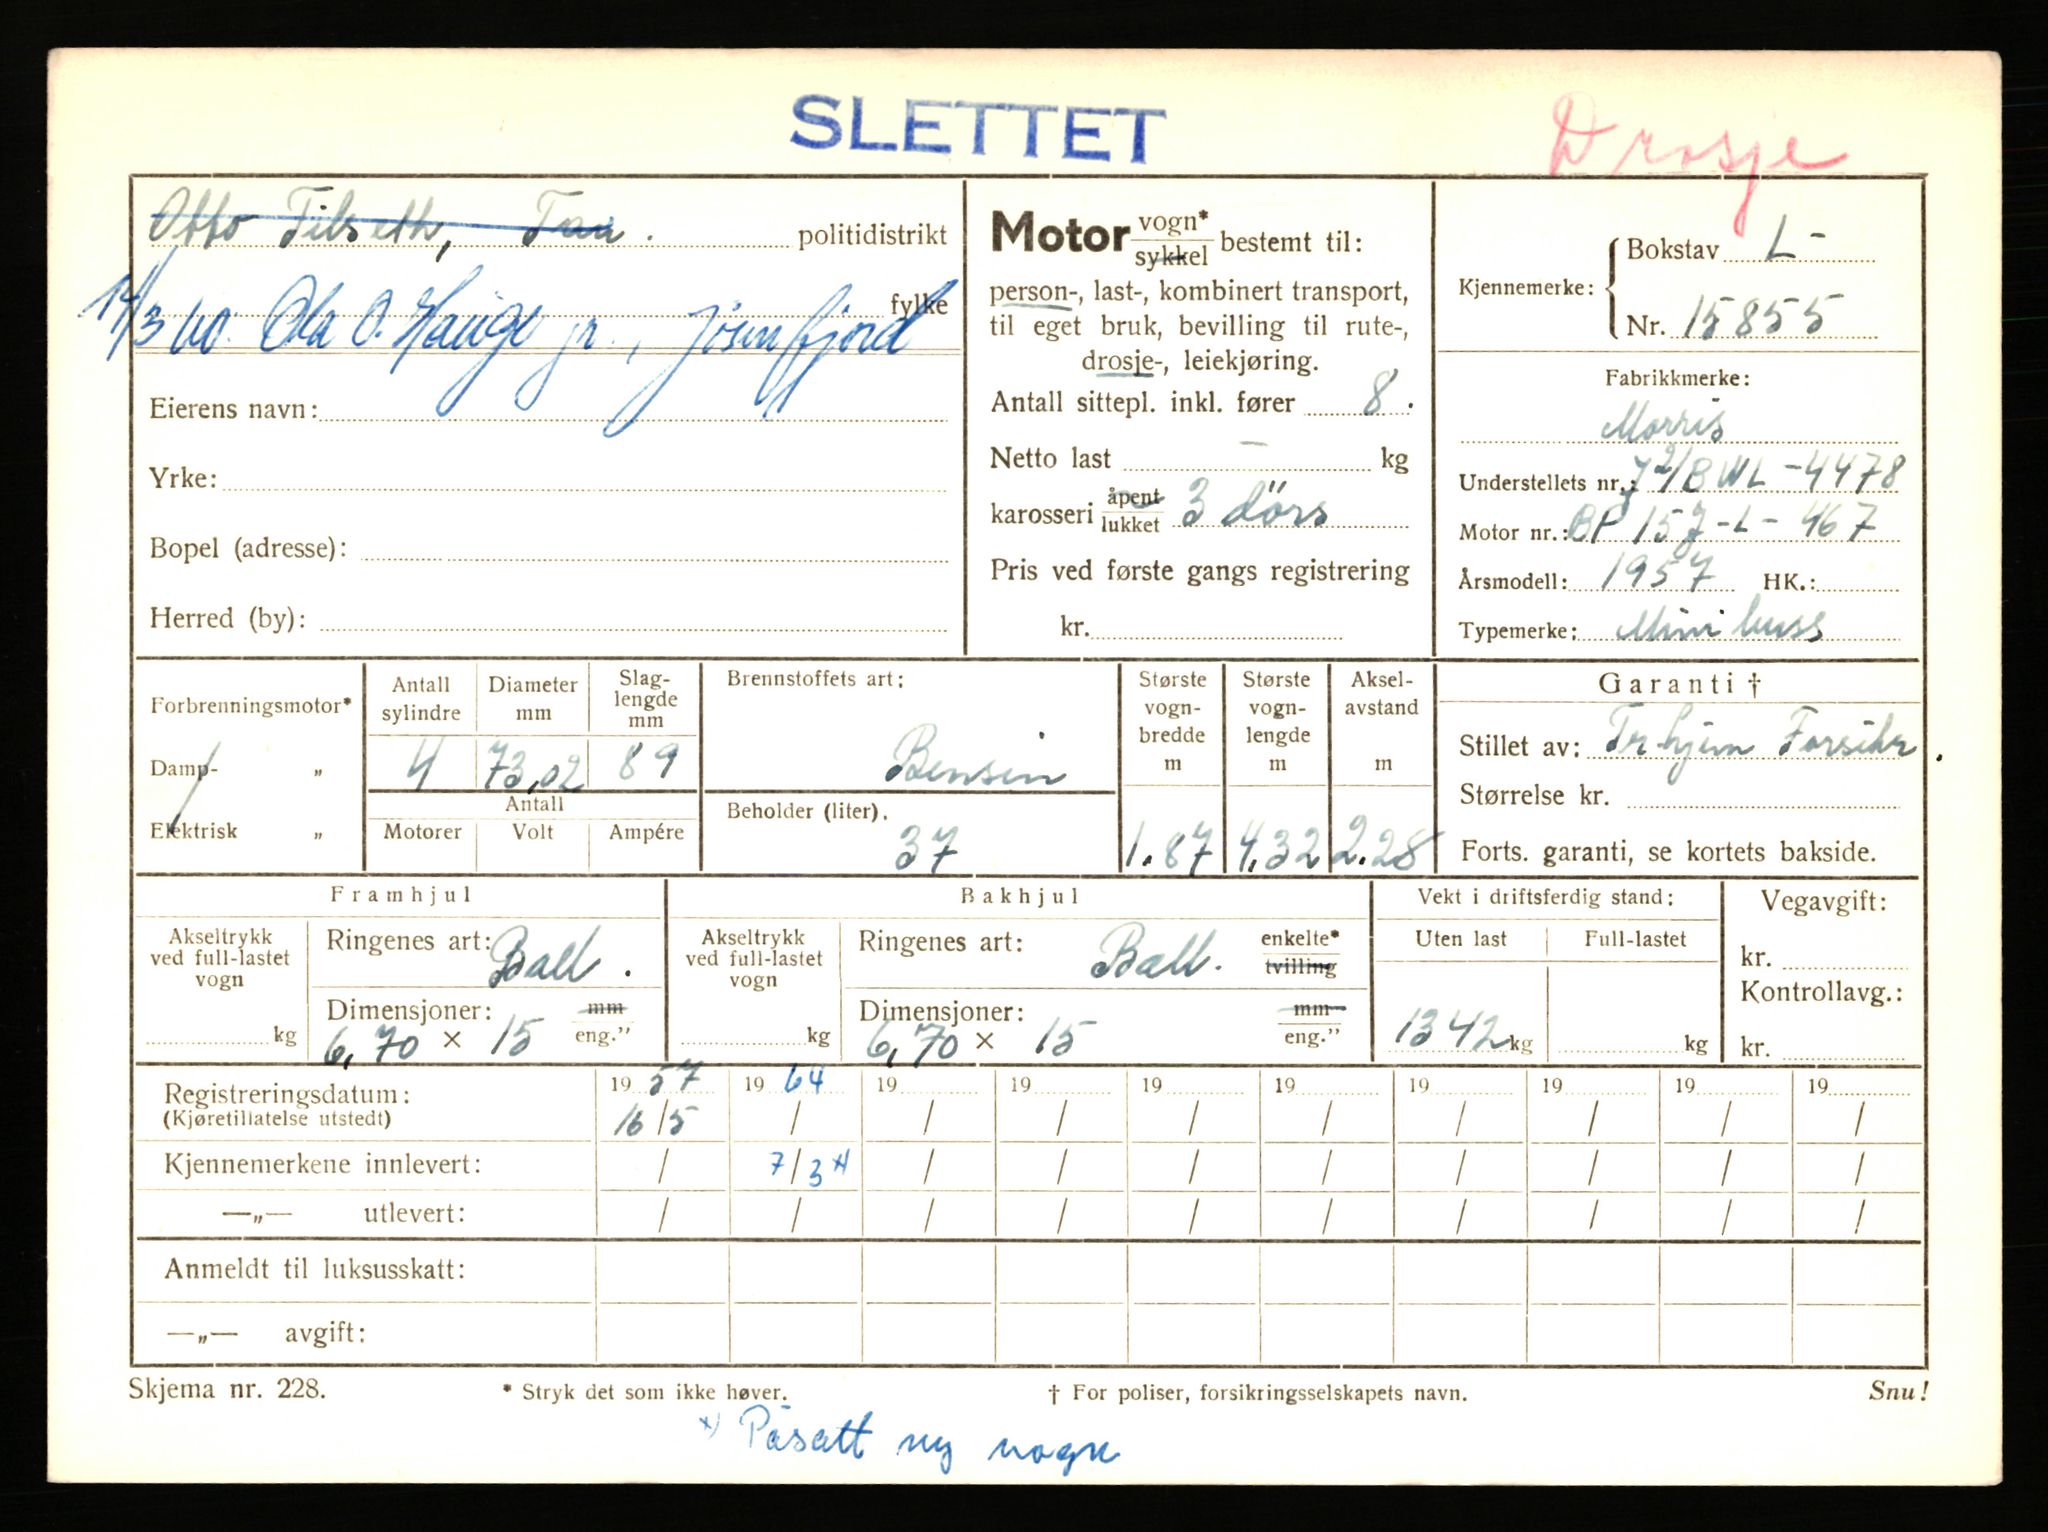 SLETTET
Drosje
Otto Tilseth, Tau. politidistrikt
14/3 60. Ola O. Hauge jr., Jøsenfjord fylke
Eierens navn:
Yrke:
Bopel (adresse):
Herred (by):
Motor vogn* / sykkel bestemt til:
person-, last-, kombinert transport,
til eget bruk, bevilling til rute-,
drosje-, leiekjøring.
Antall sittepl. inkl. fører 8.
Netto last — kg
karosseri åpent / lukket 3 dörs
Pris ved første gangs registrering
kr.
Kjennemerke: Bokstav L-
Nr. 15855
Fabrikkmerke:
Morris
Understellets nr.: J2/BWL-4478
Motor nr.: BP 157-L-467
Årsmodell: 1957 HK.:
Typemerke: Mini buss
Forbrenningsmotor*
Damp- „
Elektrisk „
Antall sylindre Diameter mm Slag-lengde mm
4 73,02 89
Antall
Motorer Volt Ampére
Brennstoffets art:
Bensin
Beholder (liter).
37
Største vogn-bredde m Største vogn-lengde m Aksel-avstand m
1.87 4,32 2.28
Garanti †
Stillet av: Tr.hjem Forsikr.
Størrelse kr.
Forts. garanti, se kortets bakside.
Framhjul
Akseltrykk ved full-lastet vogn
kg
Ringenes art: Ball.
Dimensjoner: mm / eng.”
6,70 × 15
Bakhjul
Akseltrykk ved full-lastet vogn
kg
Ringenes art: Ball. enkelte* / tvilling
Dimensjoner: mm / eng.”
6,70 × 15
Vekt i driftsferdig stand:
Uten last Full-lastet
1342 kg kg
Vegavgift:
kr.
Kontrollavg.:
kr.
Registreringsdatum: 19 57 19 64 19 19 19 19 19 19 19 19
(Kjøretillatelse utstedt) 16/5 / / / / / / / / /
Kjennemerkene innlevert: / 7/3 x) / / / / / / / /
—„— utlevert: / / / / / / / / / /
Anmeldt til luksusskatt:
—„— avgift:
Skjema nr. 228. * Stryk det som ikke høver. † For poliser, forsikringsselskapets navn. Snu!
x) Påsatt ny vogn